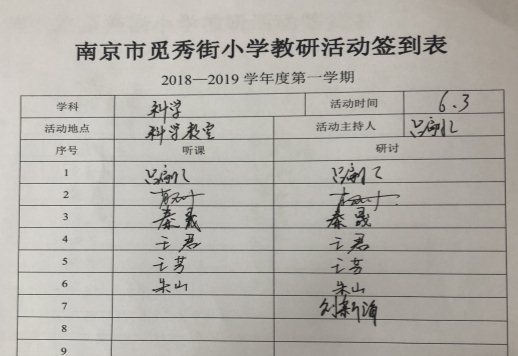 南京市觅秀街小学教研活动签到表
2018—2019 学年度第一学期
学科 科学 活动时间 6.3
活动地点 科学教室 活动主持人
序号 听课 研讨
1
2
3 秦晟 秦晟
4 王君 王君
5 王芳 王芳
6 朱山 朱山
7
8
9